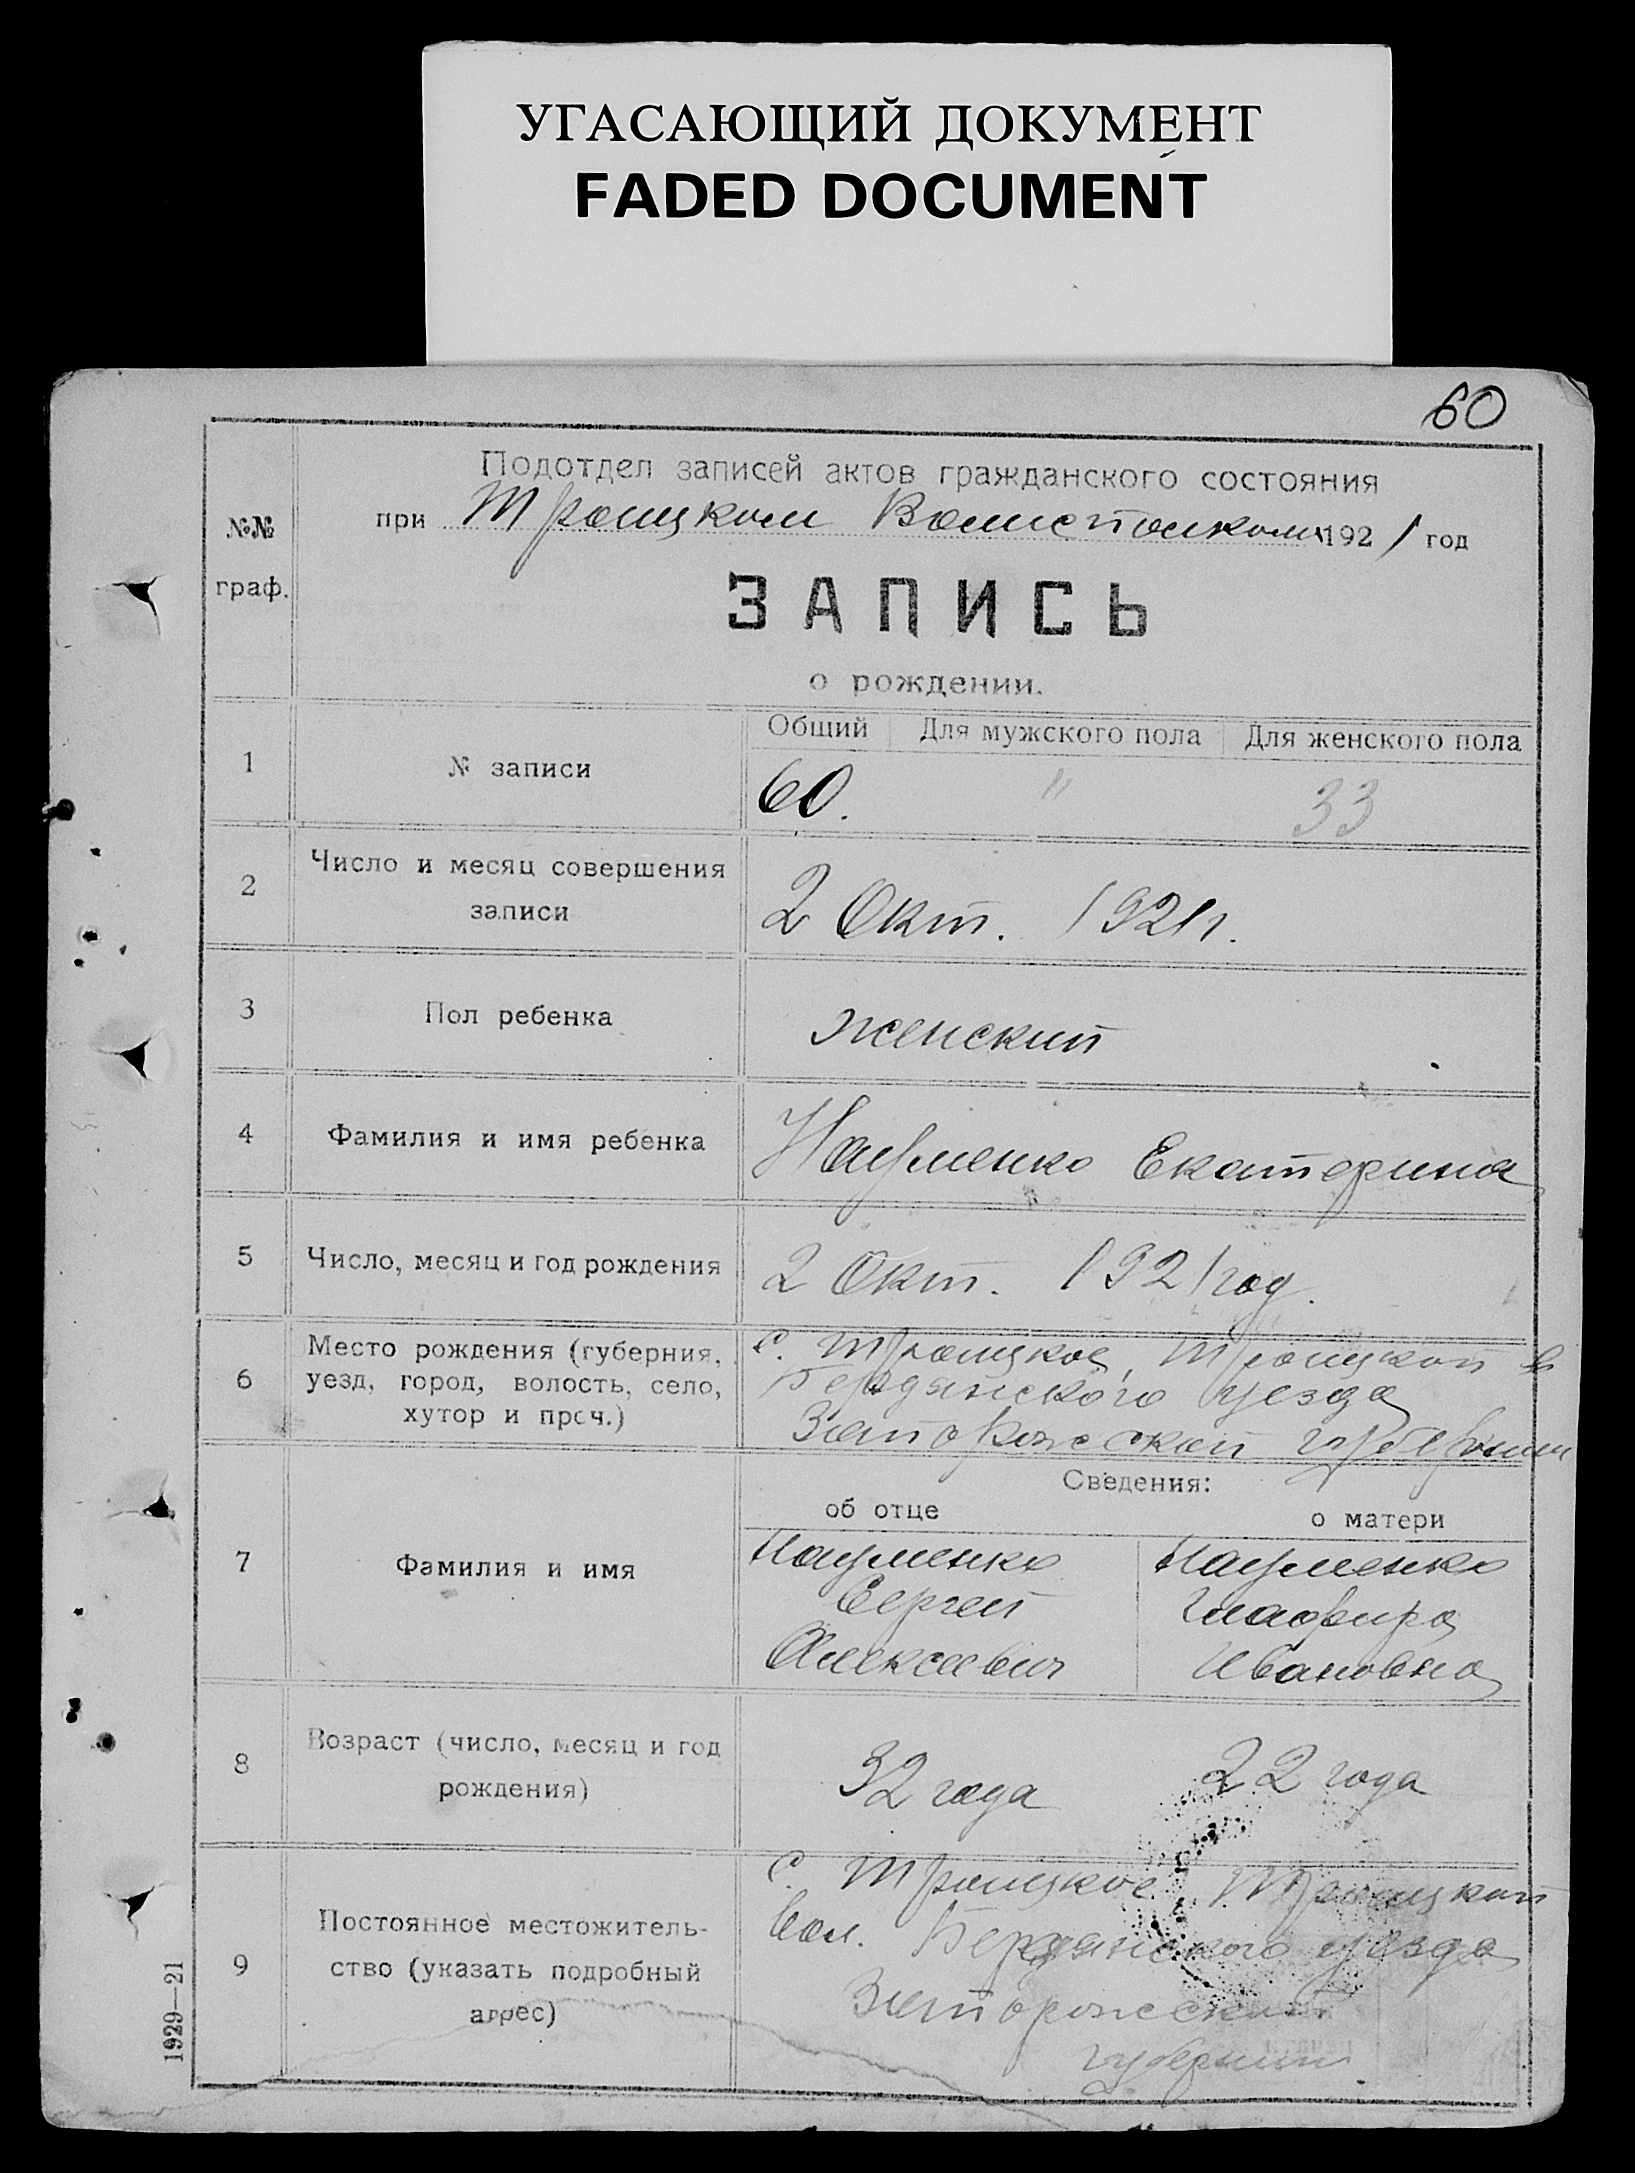 УГАСАЮЩИЙ ДОКУМЕНТ
FADED DOCUMENT
60
Подотдел записей актов гражданского состояния
при Троицком Волисполкоме 1921 год
№№
граф.
ЗАПИСЬ
о рождении.
Общий Для мужского пола Для женского пола
1 № записи 60. " 33
2 Число и месяц совершения
записи
2 Окт. 1921 г.
3 Пол ребенка женский
4 Фамилия и имя ребенка Науменко Екатерина
5 Число, месяц и год рождения 2 Окт. 1921 год.
6 Место рождения (губерния,
уезд, город, волость, село,
хутор и проч.)
с. Троицкое, Троицкой в
Бердянского уезда
Запорожской губернии
Сведения:
об отце о матери
7 Фамилия и имя
Науменко
Сергей
Алексеевич
Науменко
Глафира
Ивановна
8 Возраст (число, месяц и год
рождения)
32 года 22 года
9 Постоянное местожитель-
ство (указать подробный
адрес)
с. Троицкое, Троицкой
вол. Бердянского уезда
Запорожской
губернии.
1929—21